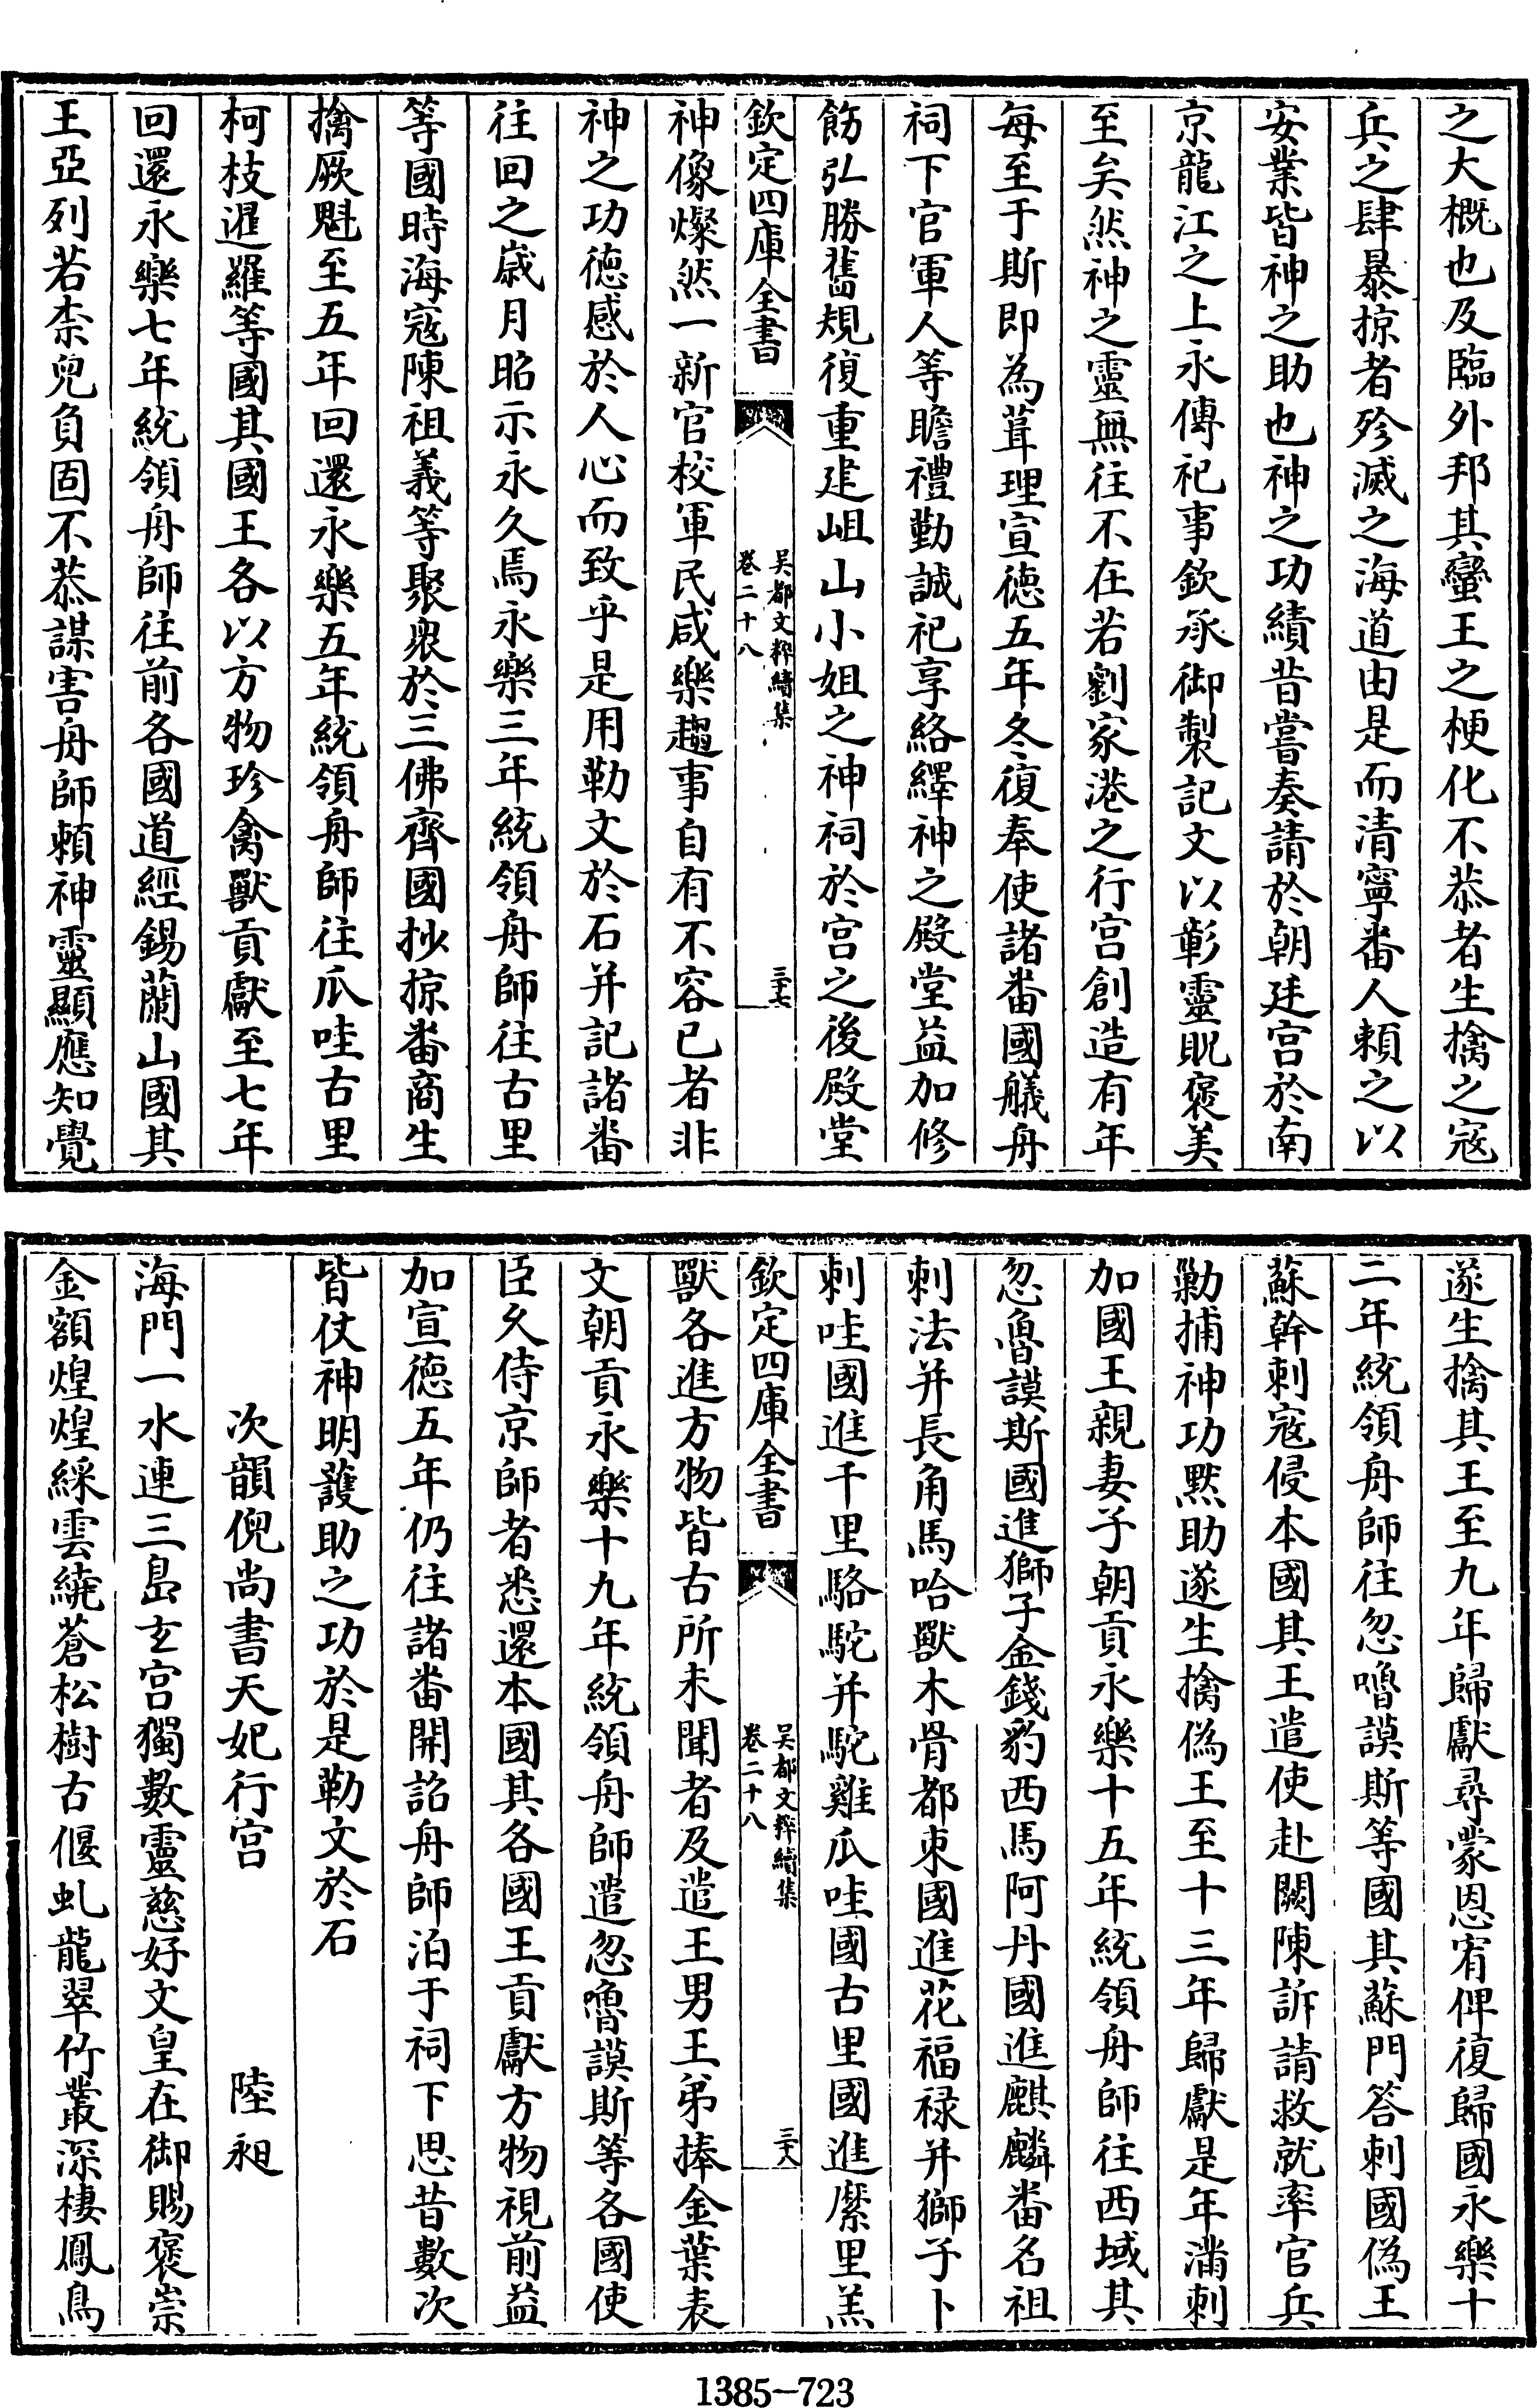 之大概也及臨外邦其蠻王之梗化不恭者生擒之寇
兵之肆暴掠者殄滅之海道由是而清寧番人賴之以
安業皆神之助也神之功績昔嘗奏請於朝廷宫於南
京龍江之上永傳祀事欽承御製記文以彰靈貺褒美
至矣然神之靈無往不在若劉家港之行宫創造有年
每至于斯即為葺理宣徳五年冬復奉使諸畨國艤舟
祠下官軍人等瞻禮勤誠祀享絡繹神之殿堂益加修
飭弘勝舊規復重建岨山小姐之神祠於宫之後殿堂
欽定四庫全書
吳都文粹續集
卷二十八
三十七
神像燦然一新官校軍民咸樂趨事自有不容已者非
神之功徳感於人心而致乎是用勒文於石并記諸畨
往回之嵗月昭示永久焉永樂三年統領舟師往古里
等國時海寇陳祖義等聚衆於三佛齊國抄掠畨商生
擒厥魁至五年回還永樂五年統領舟師往爪哇古里
柯枝暹羅等國其國王各以方物珍禽獸貢獻至七年
回還永樂七年統領舟師往前各國道經錫蘭山國其
王亞列若柰兒負固不恭謀害舟師賴神靈顯應知覺
遂生擒其王至九年歸獻尋蒙恩宥俾復歸國永樂十
二年統領舟師往忽嚕謨斯等國其蘇門答剌國偽王
蘇幹剌寇侵本國其王遣使赴闕陳訴請救就率官兵
勦捕神功黙助遂生擒偽王至十三年歸獻是年滿剌
加國王親妻子朝貢永樂十五年統領舟師往西域其
忽魯謨斯國進獅子金錢豹西馬阿丹國進麒麟畨名祖
剌法并長角馬哈獸木骨都束國進花福禄并獅子卜
剌哇國進千里駱駝并駝雞爪哇國古里國進縻里羔
欽定四庫全書
吳都文粹續集
卷二十八
三十八
獸各進方物皆古所未聞者及遣王男王弟捧金葉表
文朝貢永樂十九年統領舟師遣忽嚕謨斯等各國使
臣久侍京師者悉還本國其各國王貢獻方物視前益
加宣徳五年仍往諸畨開詔舟師泊于祠下思昔數次
皆仗神明護助之功於是勒文於石
次韻倪尚書天妃行宫 陸昶
海門一水連三島玄宫獨數靈慈好文皇在御賜褒崇
金額煌煌綵雲繞蒼松樹古偃虬龍翠竹叢深棲鳳鳥
1385—723